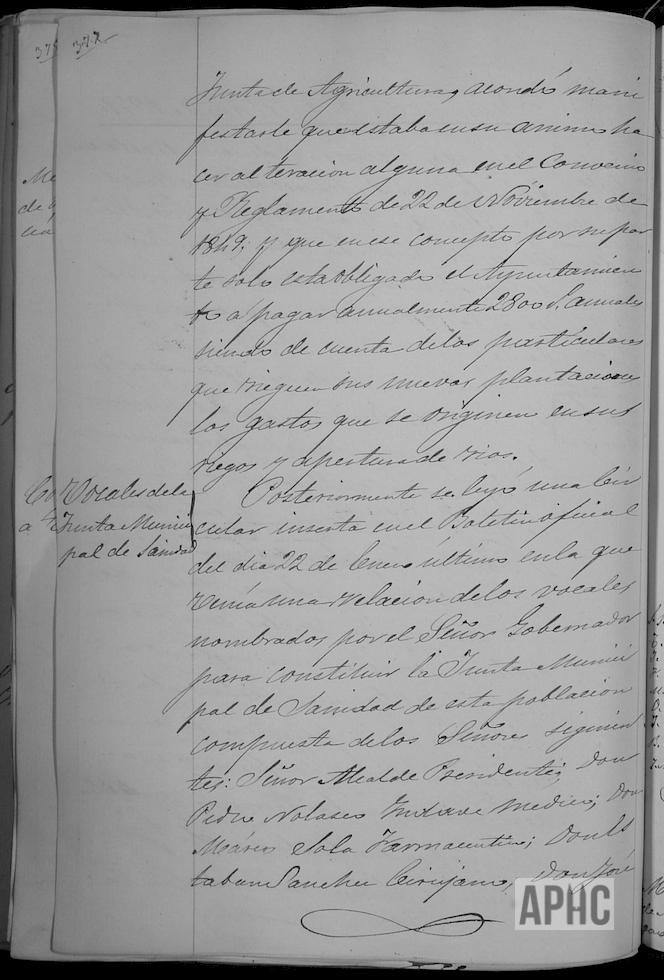 377
Junta de Agricultura, acordó mani
festarle que estaba en su animo ha
cer alteracion alguna en el Convenio
y Reglamento de 22 de Noviembre de
1849; y que en ese concepto por su par
te solo esta obligado el Ayuntamien
to a pagar anualmente 2800 anuales
siendo de cuenta de los particulares
que rieguen sus nuevas plantaciones
los gastos que se originen en sus
riegos y apertura de rios.
Vocales de la
Junta Munici
pal de Sanidad
Posteriormente se leyó una Cir
cular inserta en el Boletin oficial
del dia 22 de Enero último en la que
venia una relacion de los vocales
nombrados por el Señor Gobernador
para constituir la Junta Munici
pal de Sanidad de esta poblacion
compuesta de los Señores siguien
tes: Señor Alcalde Presidente; Don
Pedro Nolasco medico; Don
Sola Farmaceutico; Don Es
taban Sanchez Cirujano; Don José
APHC